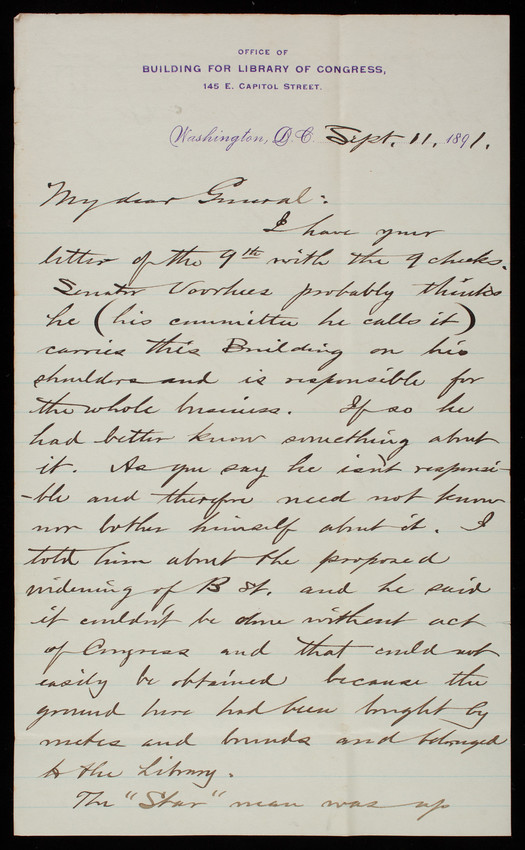 OFFICE OF
BUILDING FOR LIBRARY OF CONGRESS,
145 E. CAPITOL STREET.
Washington, D.C. Sept. 11, 1891.
My dear General:
I have your
letter of the 9th with the 9 checks.
Senator Voorhees probably thinks
he (his committee he calls it)
carries this Building on his
shoulders and is responsible for
the whole business. If so he
had better know something about
it. As you say he isn't responsi-
-ble and therefore need not know
nor bother himself about it. I
told him about the proposed
widening of B St. and he said
it couldn't be done without act
of Congress and that could not
easily be obtained because the
ground here had been bought by
metes and bounds and belonged
to the Library.
The "Star" man was up